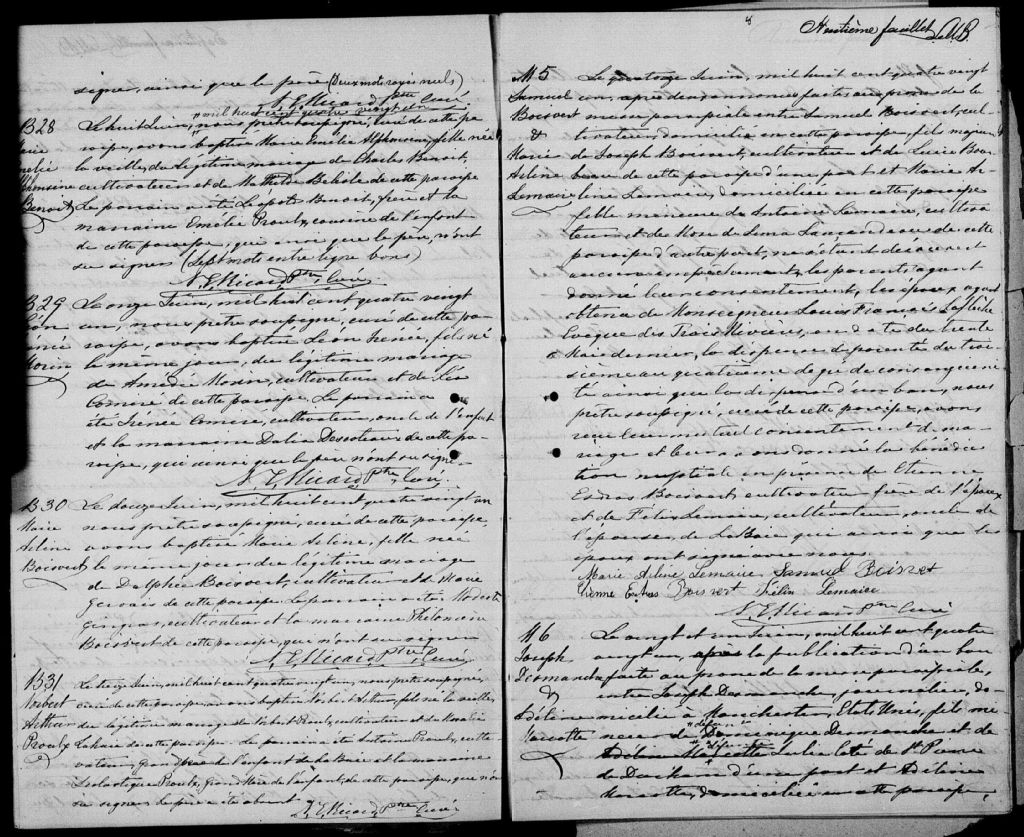 signer, ainsi que le père (Deux mots rayés nuls)
N. E. Ricard Ptre Curé
"mil huit cent quatre vingt un
B28
Marie
Emélie
Alphonsine
Benoit
Le huit Juin, nous prêtre soussigné, curé de cette pa-
roisse, avons baptisé Marie Emélie Alphonsine, fille née
la veille, du légitime mariage de Charles Benoit,
cultivateur et de Mathilde de cette paroisse
Le parrain a été Benoit, frère et la
marraine Emélie Proulx, cousine de l'enfant
de cette paroisse, qui ainsi que le père, n'ont
su signer (Sept mots entre ligne bons)
N. E. Ricard Ptre Curé
B29
Léon
Irénée
Morin
Le onze Juin, mil huit cent quatre vingt
un, nous prêtre soussigné, curé de cette pa-
roisse, avons baptisé Léon Irénée, fils né
le même jour, du légitime mariage
de Amédée Morin, cultivateur et de Léa
de cette paroisse. Le parrain a
été Irénée, cultivateur, oncle de l'enfant
et la marraine Dalia de cette pa-
roisse, qui ainsi que le père n'ont su signer
N. E. Ricard Ptre Curé
B30
Marie
Arline
Boisvert
Le douze Juin, mil huit cent quatre vingt un
nous prêtre soussigné, curé de cette paroisse,
avons baptisé Marie Arline, fille née
le même jour du légitime mariage
de Delphée Boisvert, cultivateur et de Marie
Gervais de cette paroisse. Le parrain a été Modeste
cultivateur et la marraine Philomène
Boisvert de cette paroisse, qui n'ont su signer
N. E. Ricard Ptre Curé
B31
Norbert
Arthur
Proulx
Le treize Juin, mil huit cent quatre vingt un, nous prêtre soussigné,
curé de cette paroisse, avons baptisé Norbert Arthur, fils né la veille,
du légitime mariage de Norbert Proulx, cultivateur et de
de cette paroisse. Le parrain a été Antoine Proulx, culti-
vateur, Grand père de l'enfant de La Baie et la marraine
Scholastique Proulx, Grand Mère de l'enfant, de cette paroisse, qui n'ont
su signer le père a été absent
N. E. Ricard Ptre Curé
Huitième feuillet L.U.B.
M5
Samuel
Boisvert
&
Marie
Arline
Lemaire
Le quatorze Juin, mil huit cent quatre vingt
un, après deux annonces faites au prône de la
messe paroissiale entre Samuel Boisvert, cul-
tivateur, domicilié en cette paroisse, fils majeur
de Joseph Boisvert, cultivateur et de
de cette paroisse d'une part et Marie Ar-
line Lemaire, domiciliée en cette paroisse
fille mineure de Antoine Lemaire, cultiva-
teur et de Rose de Lima de cette
paroisse d'autre part, ne s'étant découvert
aucun empêchement, les parents ayant
donné leur consentement, les époux ayant
obtenu de Monseigneur Louis François Laflèche
Evêque des Trois Rivières, en date du trente
Mai dernier, la dispense de parenté du troi-
sième au quatrième degré de consanguini-
té ainsi que la dispense d'un ban, nous
prêtre soussigné, curé de cette paroisse, avons
reçu leur mutuel consentement de ma-
riage et leur avons donné la bénédic-
tion nuptiale en présence de Etienne
Esdras Boisvert, cultivateur frère de l'époux
et de Félix Lemaire, cultivateur, oncle de
l'épouse, de La Baie qui ainsi que les
époux ont signé avec nous.
Marie Arline Lemaire Samuel Boisvet
Etienne Esdras Boisvert Félix Lemaire
N. E. Ricard Ptre Curé
M6
Joseph
Desmanche
&
Adéline
Marcotte
Le vingt et un Juin, mil huit cent quatre
vingt un, après la publication d'un ban
faite au prône de la messe paroissiale,
entre Joseph Desmanche, journalier, do-
micilié à Manchester, Etats Unis, fils mi-
neur de Dominique Desmanche et de
Julie Côté de St Pierre
de Durham d'une part et Adéline
Marcotte, domiciliée en cette paroisse,